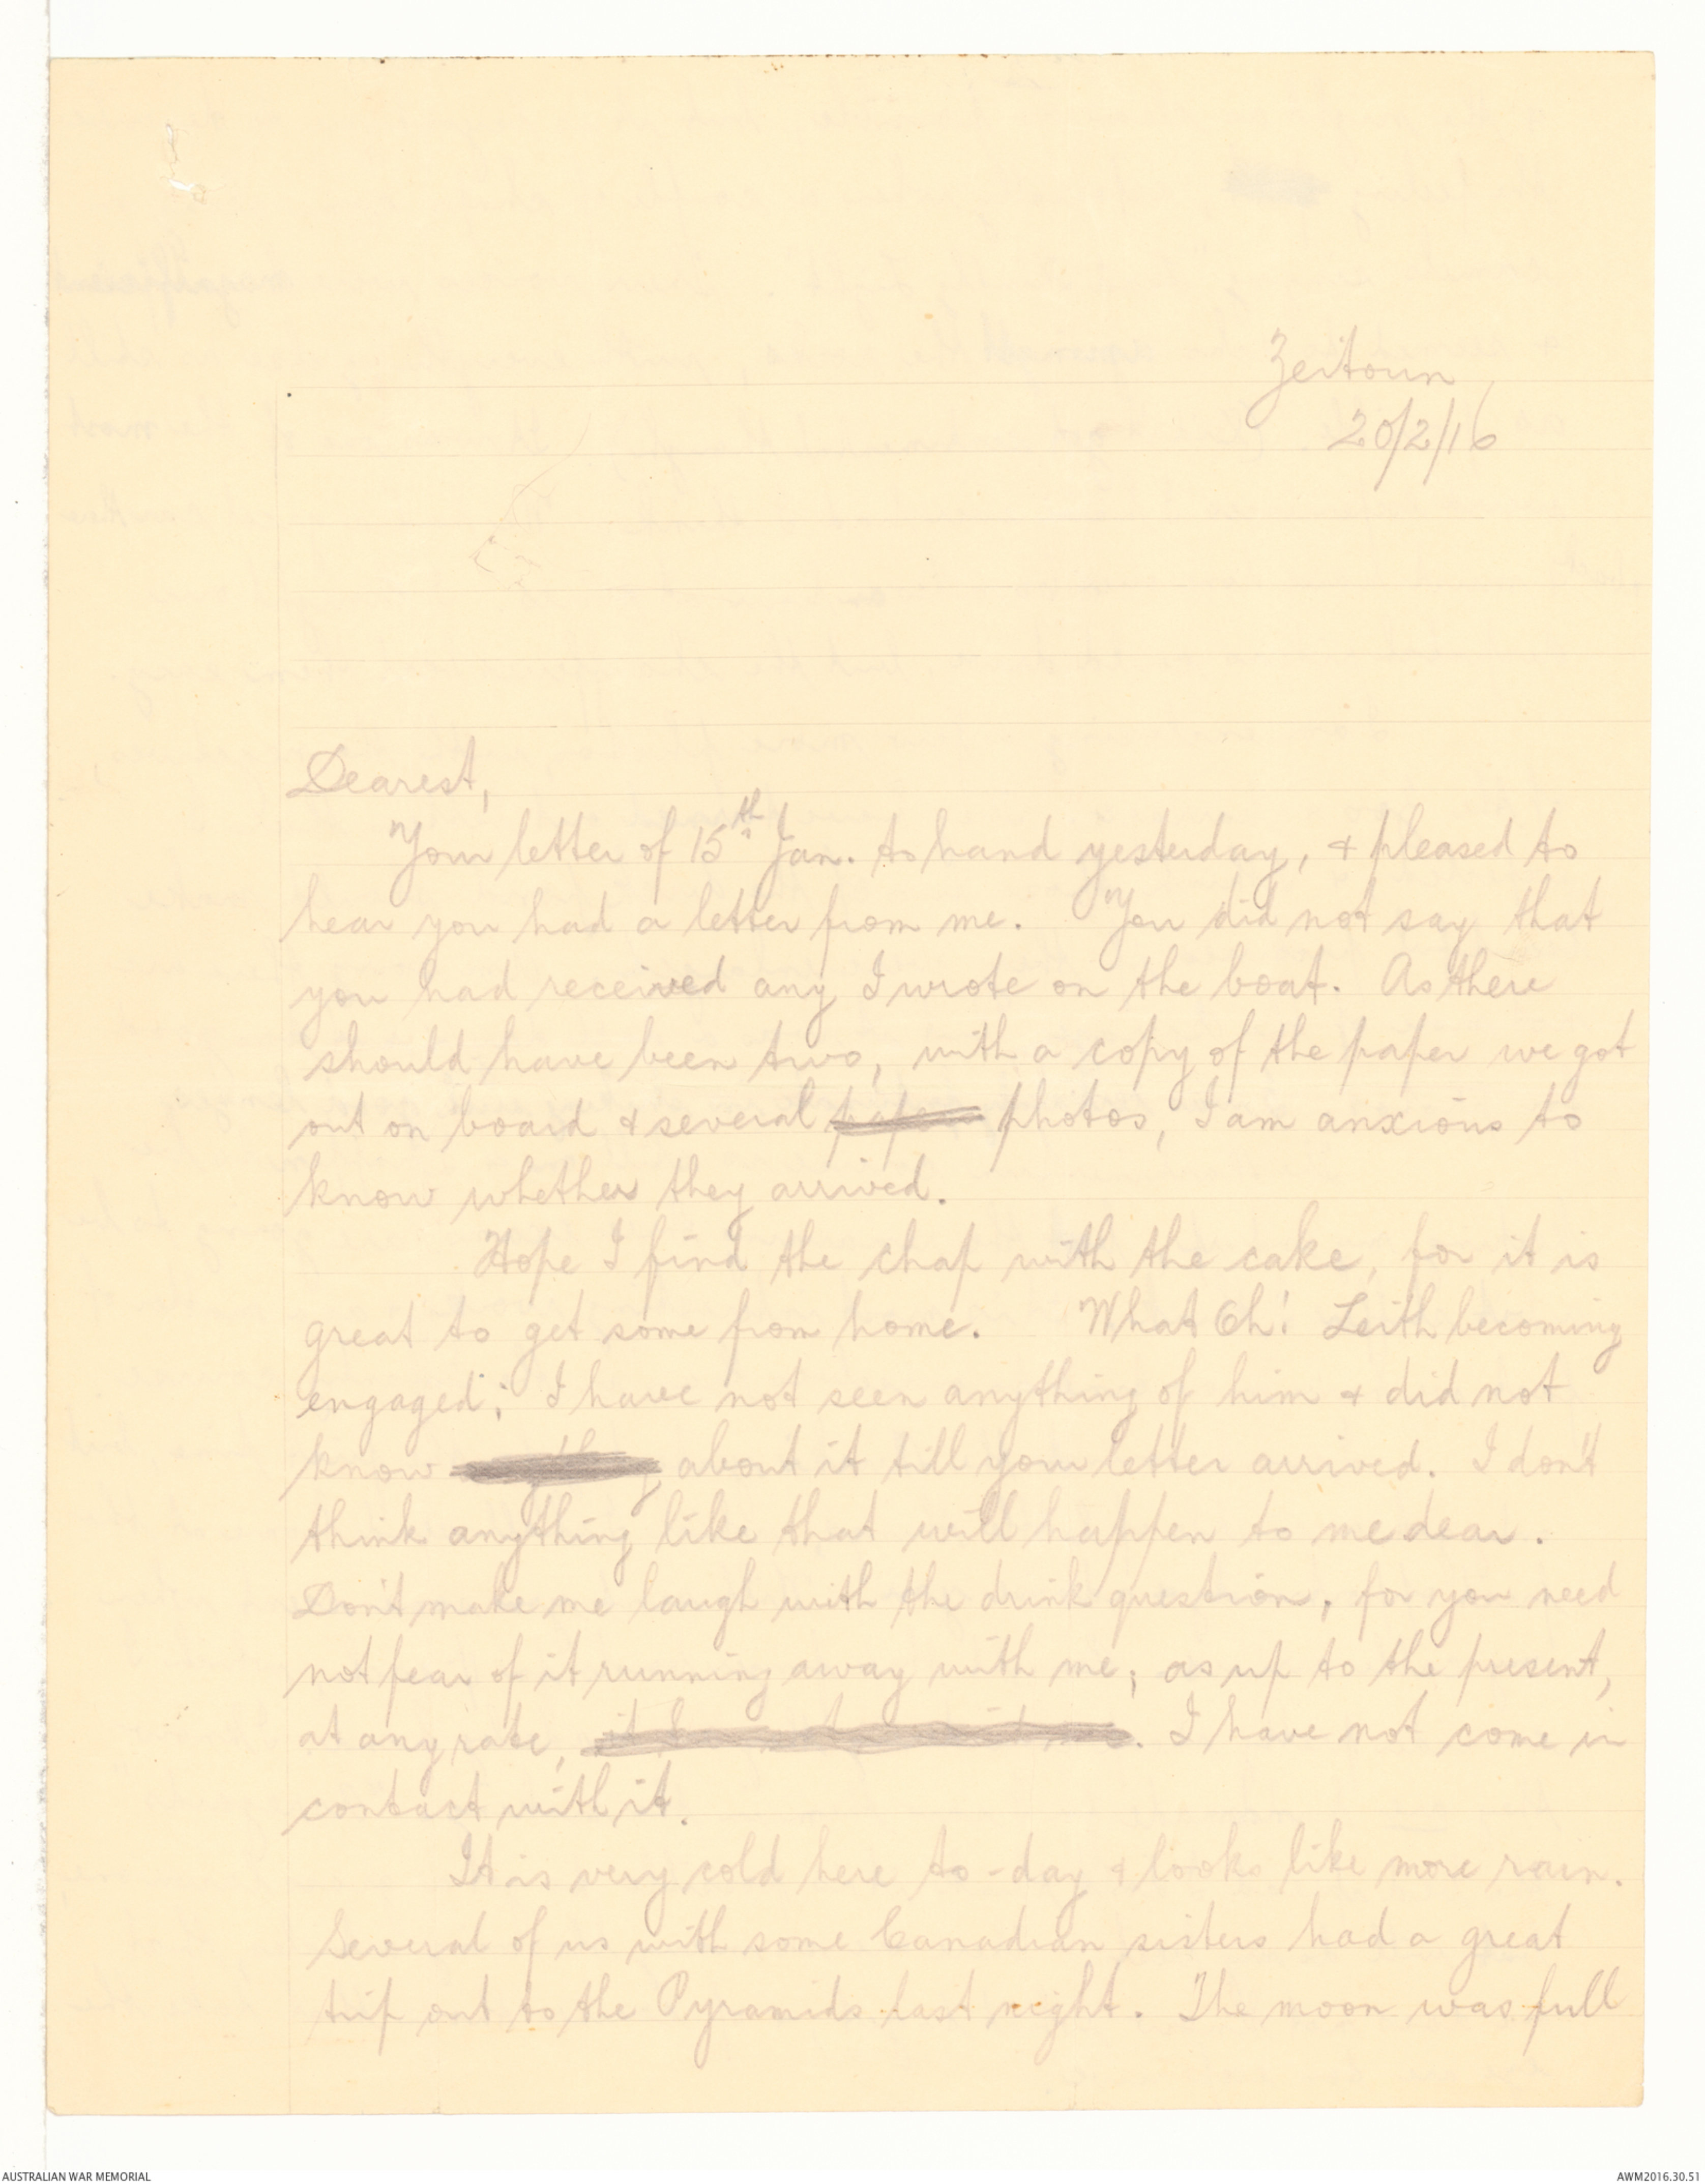 Zeitoun,
20/2/16
Dearest,
Your letter of 15th Jan. to hand yesterday, & pleased to
hear you had a letter from me. You did not say that
you had received any I wrote on the boat. As there
should have been two, with a copy of the paper we got
out on board & several papers photos, I am anxious to
know whether they arrived.
Hope I find the chap with the cake, for it is
great to get some from home. What Oh! Leith becoming
engaged; I have not seen anything of him & did not
know anything about it till your letter arrived. I don't
think anything like that will happen to me dear.
Don't make me laugh with the drink question, for you need
not fear of it running away with me; as up to the present,
at any rate, . I have not come in
contact with it.
It is very cold here to-day & looks like more rain.
Several of us with some Canadian sisters had a great
trip out to the Pyramids last night. The moon was full
AUSTRALIAN WAR MEMORIAL
AWM2016.30.51